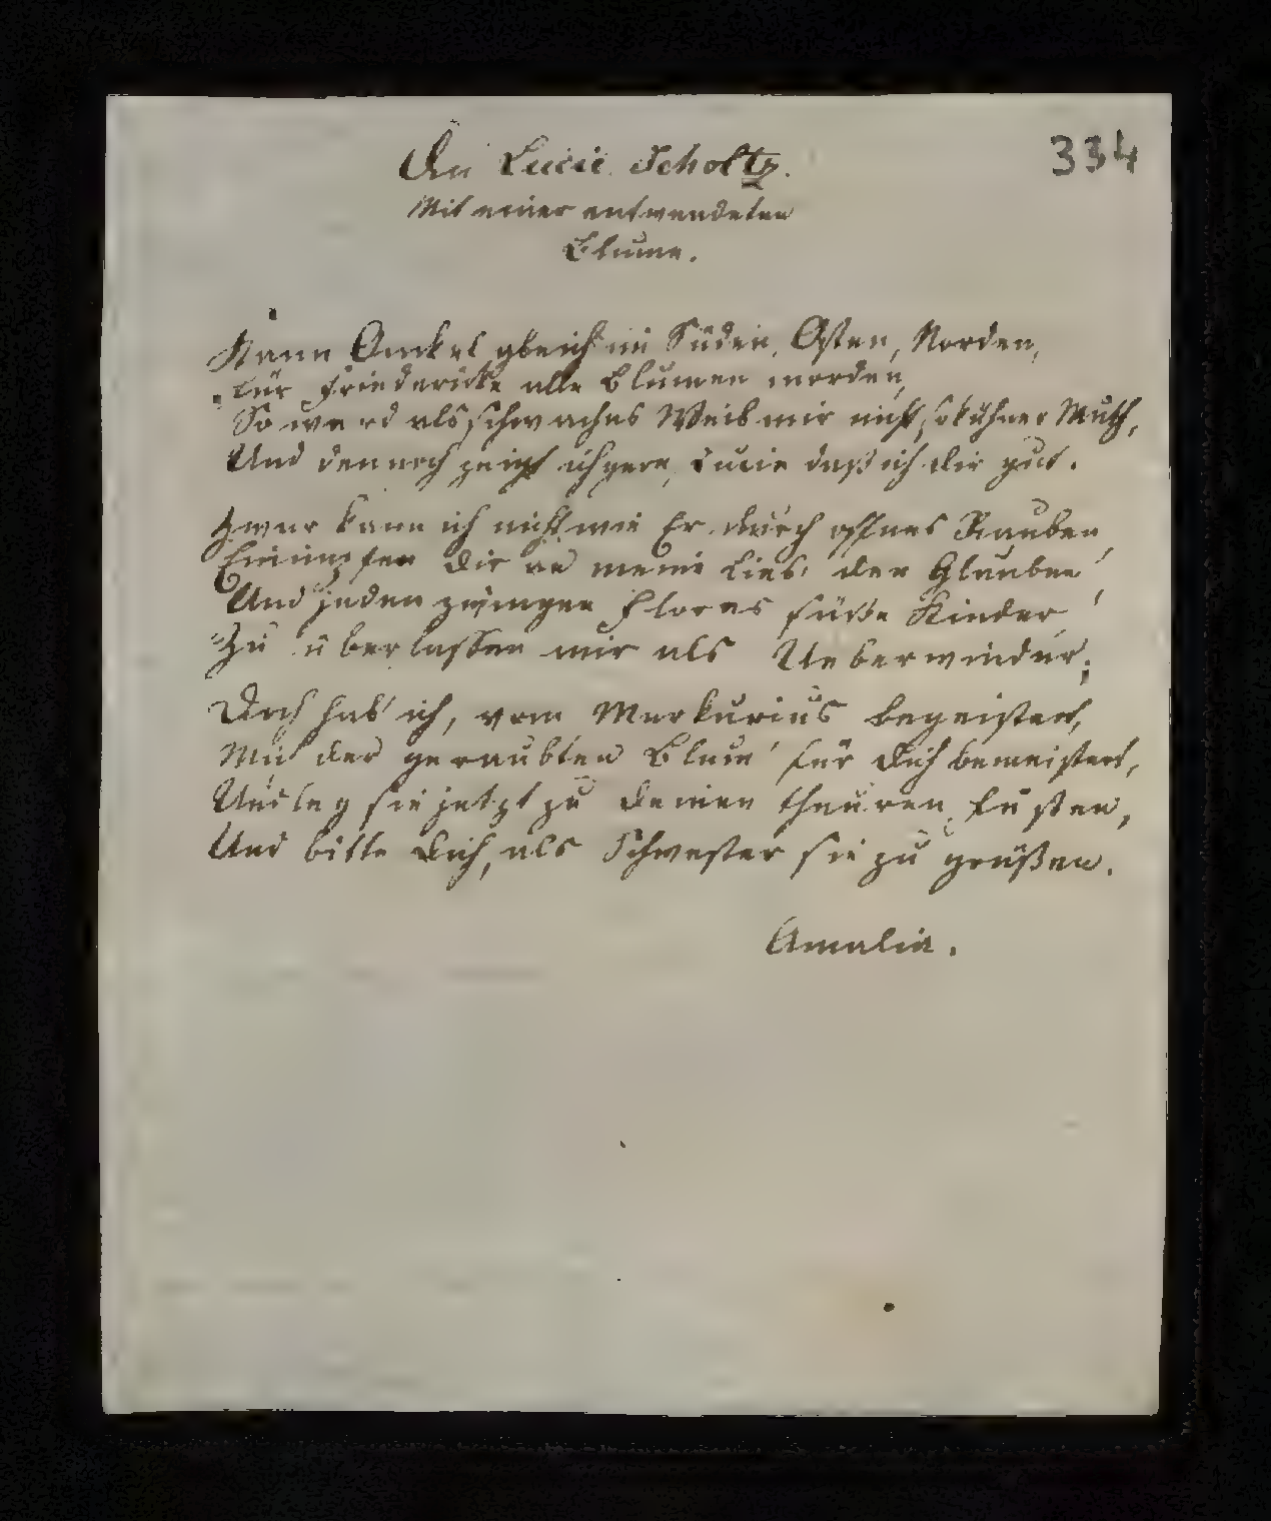 An Lucie Scholtz.
334
Mit einer entwendeten
Blume.
Kann Onckel gleich in Süden, Osten, Norden,
für Friedericke alle Blumen morden,
So ward als schwaches Weib mir nicht so kühner Muth,
Und dennoch zeigt ich gern, Lucie daß ich dir gut.
Zwar kann ich nicht wie Er durch offnes Rauben,
Einimpfen dir an meine Lieb' den Glauben
Und jeden zwingen Florens süße Kinder
Zu überlassen mir als Ueberwinder;
Doch hab' ich, vom Merkurius begeistert,
Mich der geraubten Blum' für dich bemeistert,
Und leg sie jetzt zu deinen theuren Füßen,
Und bitte dich, als Schwester sie zu grüßen.
Amalia.